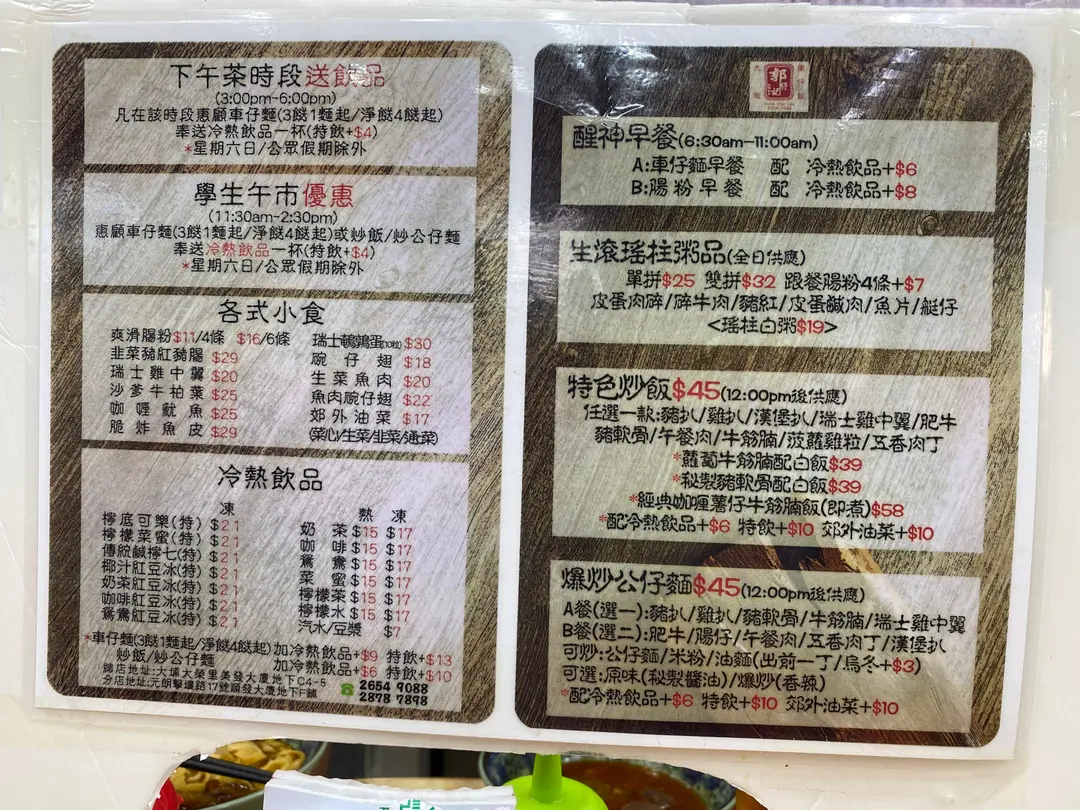 下午茶時段送飲品
(3:00pm-6:00pm)
凡在該時段惠顧車仔麵(3餸1麵起/淨餸4餸起)
奉送冷熱飲品一杯(特飲+$4)
*星期六日/公眾假期除外
學生午市優惠
(11:30am-2:30pm)
惠顧車仔麵(3餸1麵起/淨餸4餸起)或炒飯/炒公仔麵
奉送冷熱飲品一杯(特飲+$4)
*星期六日/公眾假期除外
各式小食
爽滑腸粉$11/4條 $16/6條
韭菜豬紅豬腸 $29
瑞士雞中翼 $20
沙爹牛柏葉 $25
咖喱魷魚 $25
脆炸魚皮 $29
瑞士鵪鶉蛋(10粒) $30
碗仔翅 $18
生菜魚肉 $20
魚肉碗仔翅 $22
郊外油菜 $17
(菜心/生菜/韭菜/通菜)
冷熱飲品
凍
檸底可樂(特) $21
檸檬菜蜜(特) $21
傳統鹹檸七(特) $21
椰汁紅豆冰(特) $21
奶茶紅豆冰(特) $21
咖啡紅豆冰(特) $21
鴛鴦紅豆冰(特) $21
熱 凍
奶茶 $15 $17
咖啡 $15 $17
鴛鴦 $15 $17
菜蜜 $15 $17
檸檬茶 $15 $17
檸檬水 $15 $17
汽水/豆漿 $7
*車仔麵(3餸1麵起/淨餸4餸起)加冷熱飲品+$9 特飲+$13
炒飯/炒公仔麵 加冷熱飲品+$6 特飲+$10
舖店地址:大埔大榮里美發大廈地下C4-5
分店地址:元朗擊壤路17號順發大廈地下F舖
2654 9088
2878 7898
郭仔記
醒神早餐(6:30am-11:00am)
A:車仔麵早餐 配 冷熱飲品+$6
B:腸粉早餐 配 冷熱飲品+$8
生滾瑤柱粥品(全日供應)
單拼$25 雙拼$32 跟餐腸粉4條+$7
皮蛋肉碎/碎牛肉/豬紅/皮蛋鹹肉/魚片/艇仔
<瑤柱白粥$19>
特色炒飯$45(12:00pm後供應)
任選一款:豬扒/雞扒/漢堡扒/瑞士雞中翼/肥牛
豬軟骨/午餐肉/牛筋腩/菠蘿雞粒/五香肉丁
*蘿蔔牛筋腩配白飯$39
*秘製豬軟骨配白飯$39
*經典咖喱薯仔牛筋腩飯(即煮)$58
*配冷熱飲品+$6 特飲+$10 郊外油菜+$10
爆炒公仔麵$45(12:00pm後供應)
A餐(選一):豬扒/雞扒/豬軟骨/牛筋腩/瑞士雞中翼
B餐(選二):肥牛/腸仔/午餐肉/五香肉丁/漢堡扒
可炒:公仔麵/米粉/油麵(出前一丁/烏冬+$3)
可選:原味(秘製醬油)/爆炒(香辣)
*配冷熱飲品+$6 特飲+$10 郊外油菜+$10